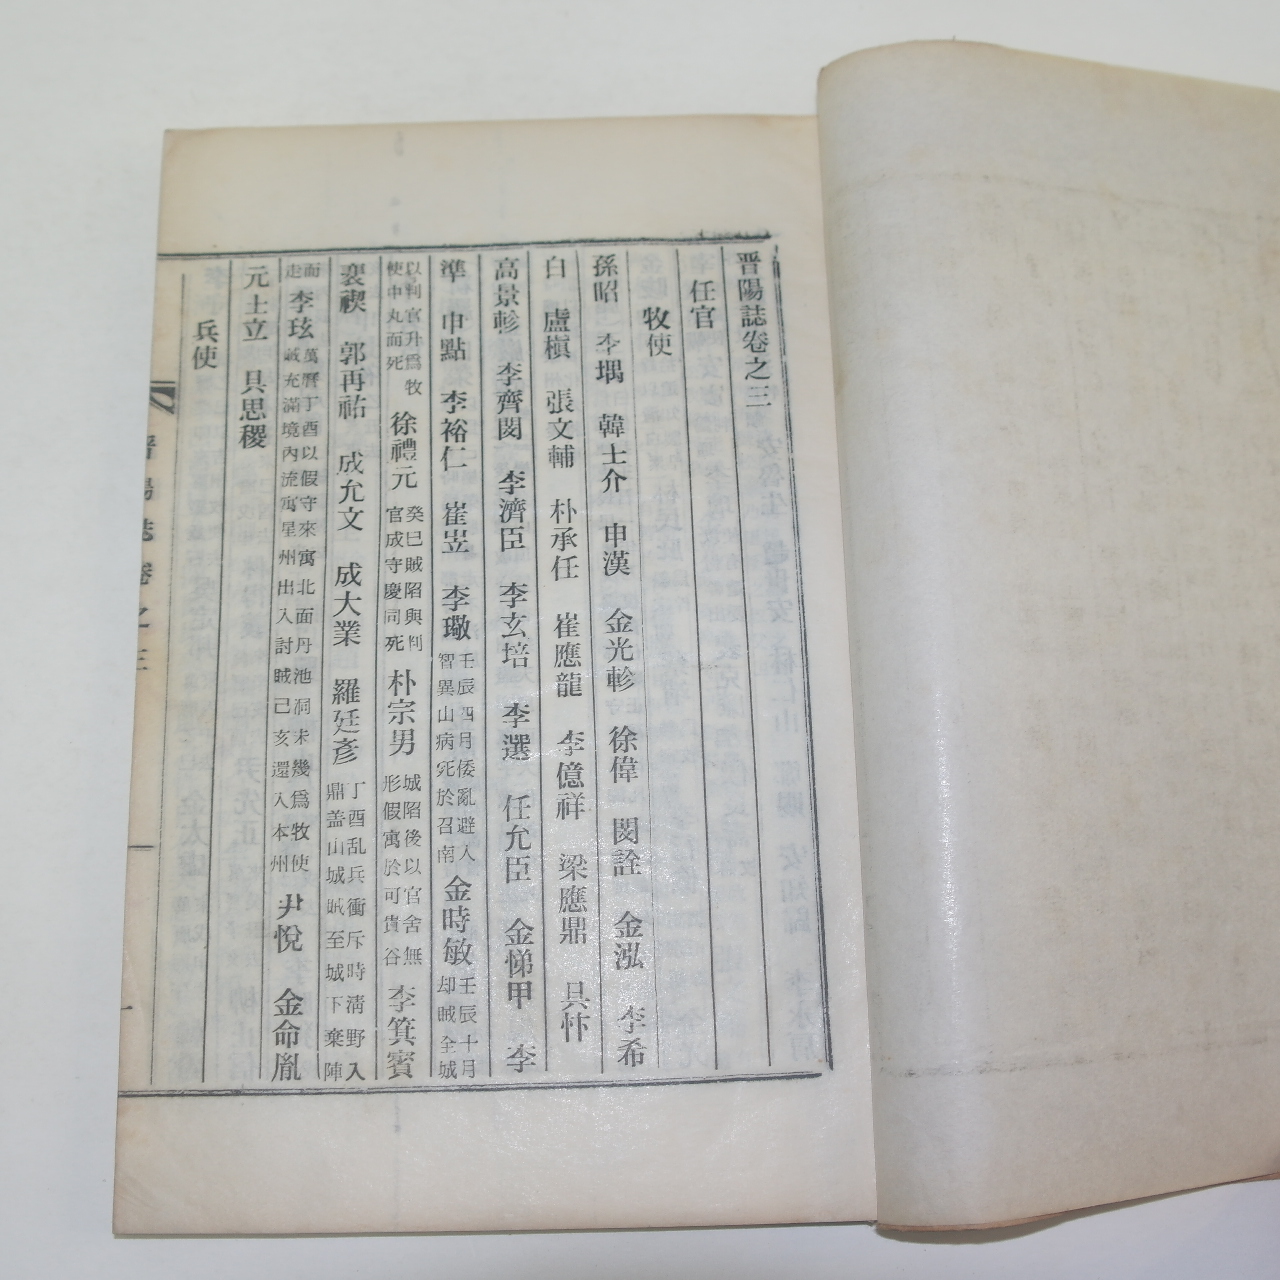 晋陽誌卷之三
任官
牧使
孫昭 李堣 韓士介 申漢 金光軫 徐偉 閔詮 金泓 李希
白 盧禛 張文輔 朴承任 崔應龍 李億祥 梁應鼎 具忭
高景軫 李齊閔 李濟臣 李玄培 李選 任允臣 金悌甲 李
準 申點 李裕仁 崔岦 李璥 壬辰四月倭亂避入智異山病死於召南 金時敏 壬辰十月却賊全城
以判官升爲牧使中丸而死 徐禮元 癸巳賊陷與判官成守慶同死 朴宗男 城陷後以官舍無形假寓於可貴谷 李箕賓
裵禊 郭再祐 成允文 成大業 羅廷彥 丁酉乱兵衝斥時淸野入鼎盖山城賊至城下棄陣
而走 李玹 萬曆丁酉以假守來寓北面丹池洞未幾爲牧使賊充滿境內流寓星州出入討賊己亥還入本州 尹悅 金命胤
元士立 具思稷
兵使
晋陽誌卷之三 一